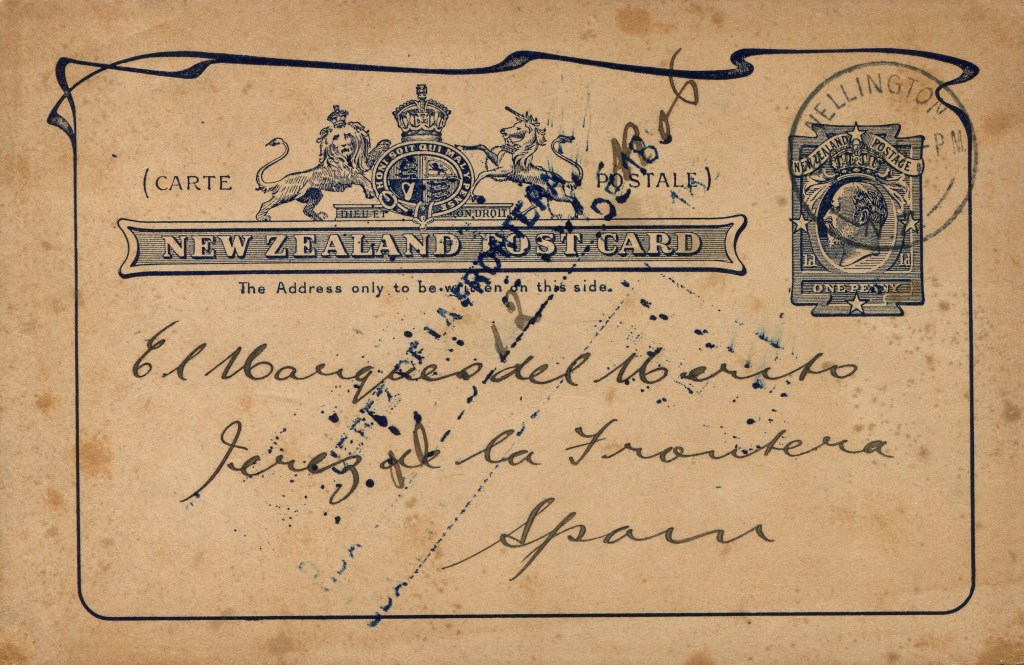 WELLINGTON
P.M
NEW ZEALAND POSTAGE &
HONI SOIT QUI MAL Y PENSE
(CARTE POSTALE)
DIEU ET MON DROIT
NEW ZEALAND POST CARD
1d 1d
ONE PENNY
The Address only to be written on this side.
El Marques del Merito
Jerez de la Frontera
Spain
JEREZ DE LA FRONTERA
12